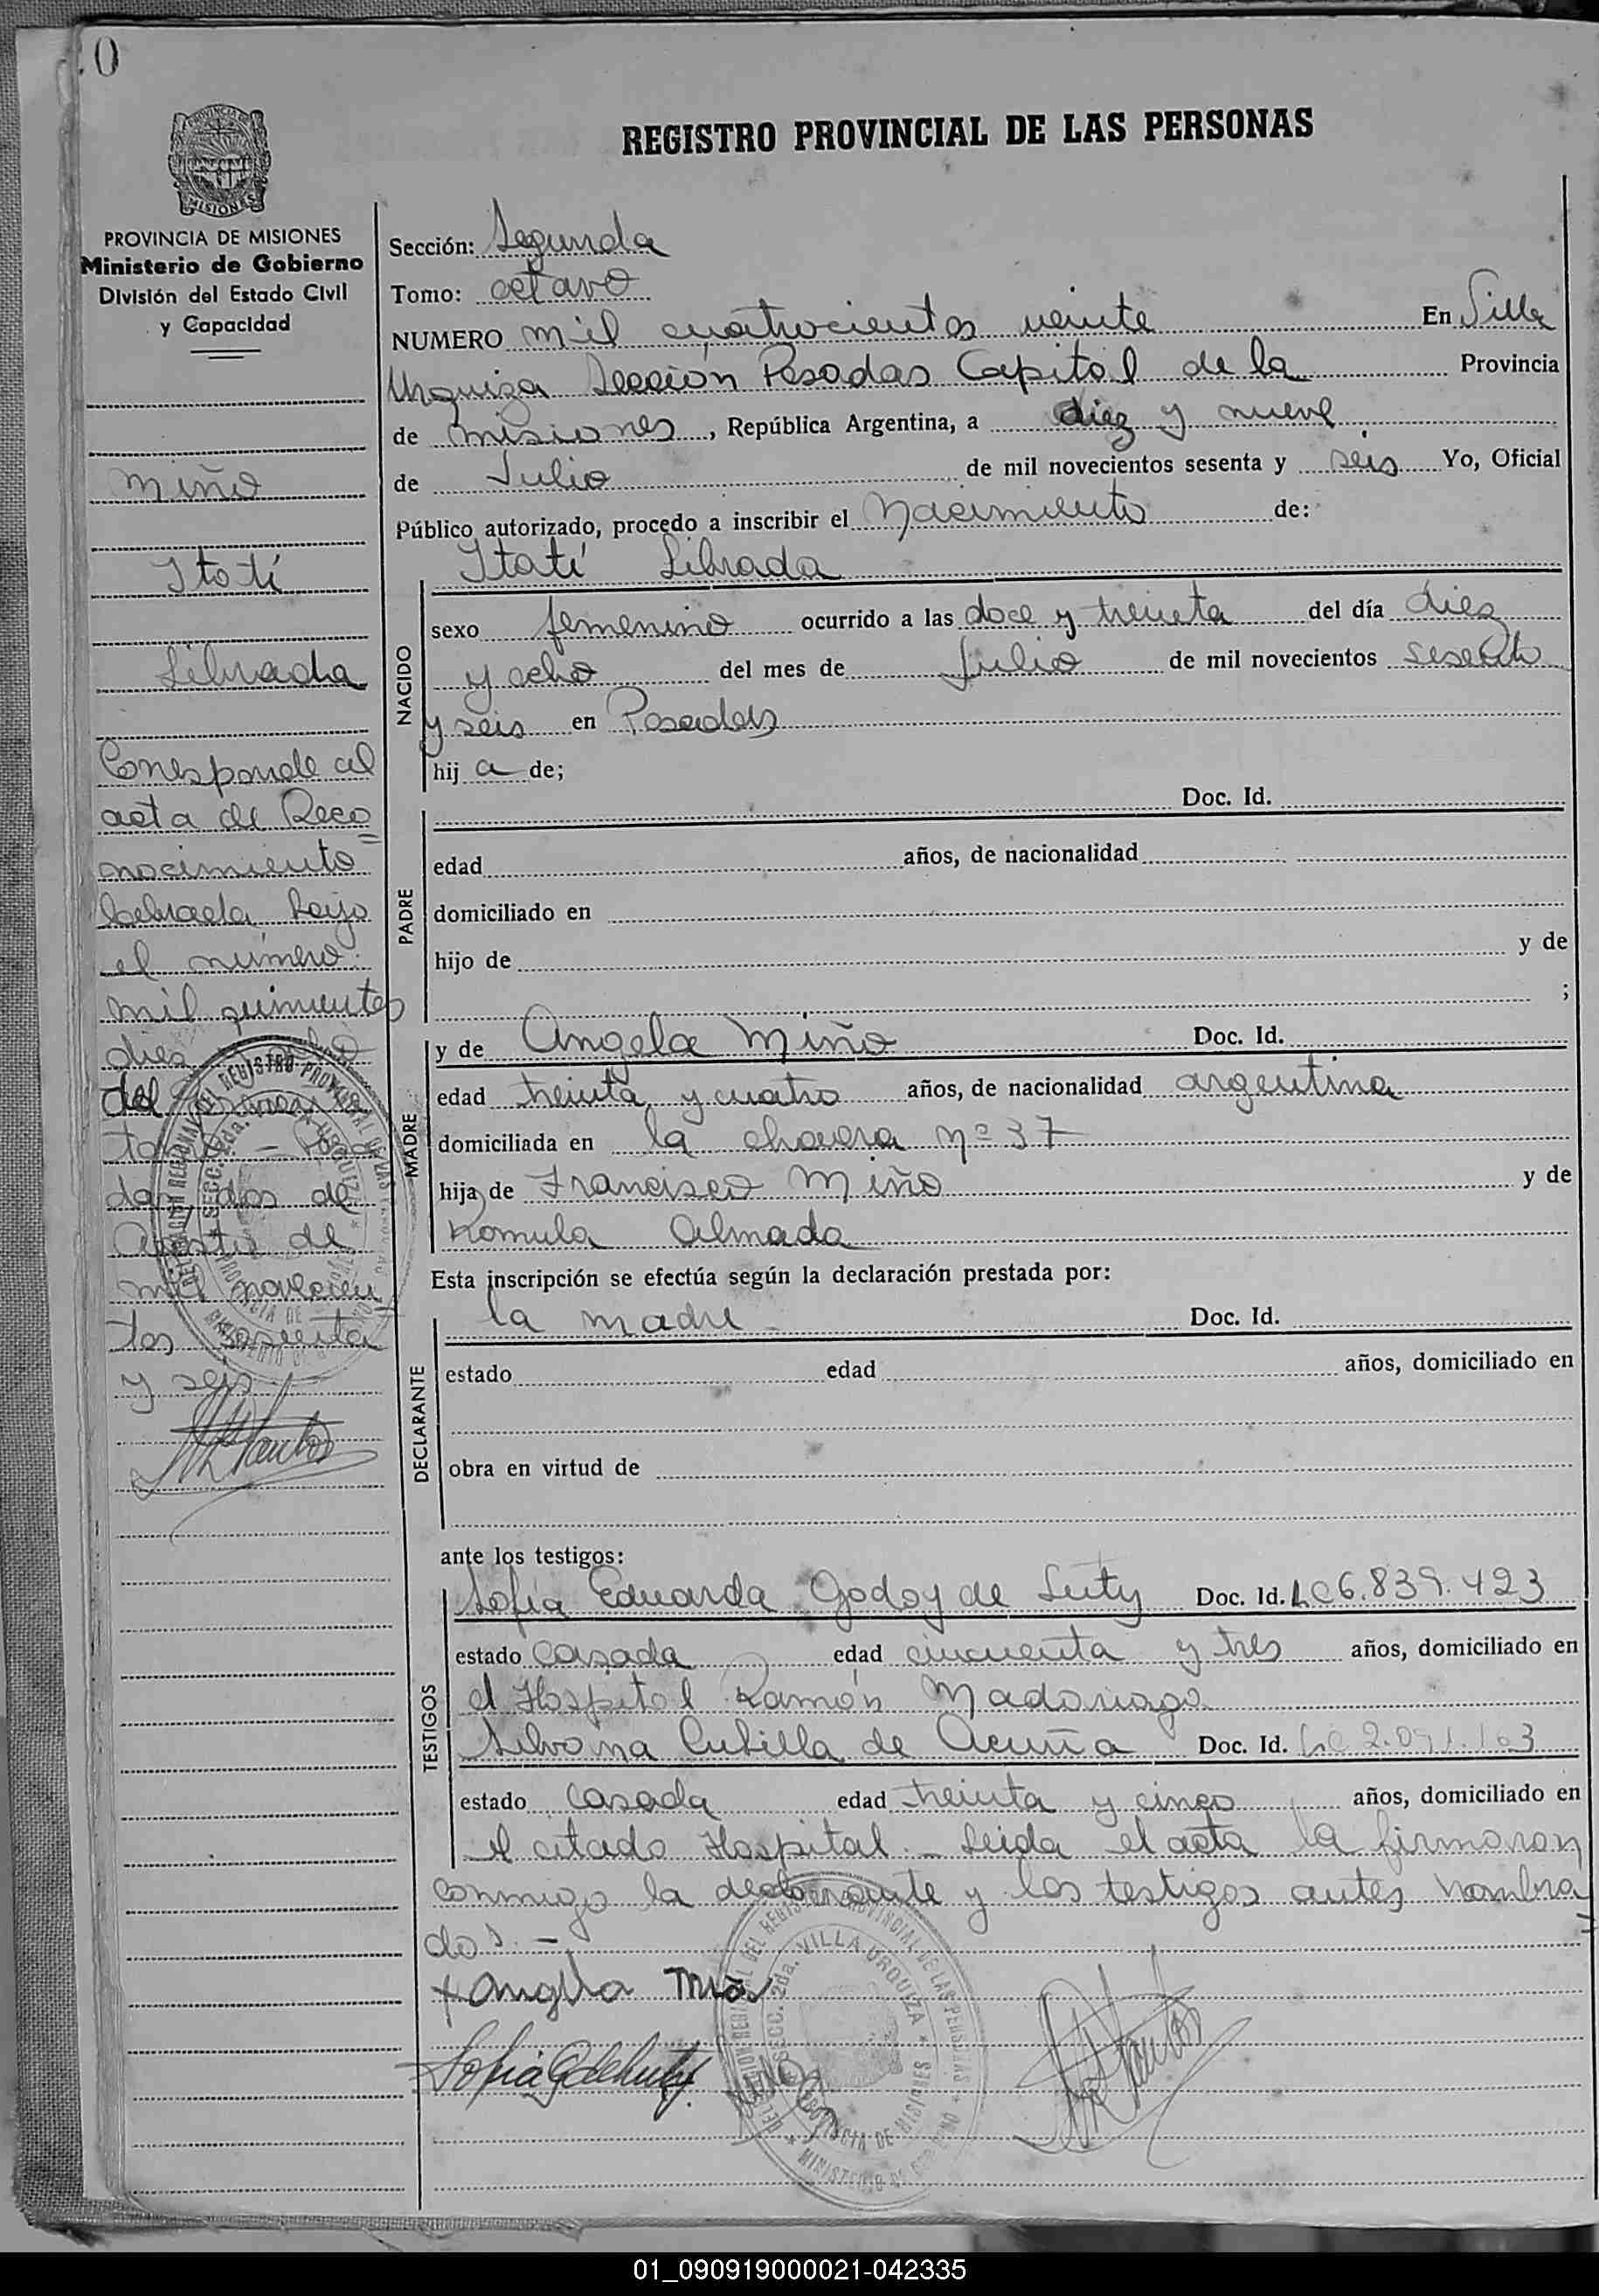 .0
REGISTRO PROVINCIAL DE LAS PERSONAS
MISIONES
PROVINCIA DE MISIONES
Ministerio de Gobierno
División del Estado Civil
y Capacidad
miño
Itatí
Librada
Corresponde al
acta de Reco=
nocimiento
labrada bajo
el número:
mil quinientos
diez
del
dos de
Agosto de
mil novecien
tos sesenta
y seis
Sección: Segunda
Tomo: octavo
NUMERO mil cuatrocientos veinte En Villa
Urquiza Sección Posadas Capital de la Provincia
de misiones, República Argentina, a diez y nueve
de Julio de mil novecientos sesenta y seis Yo, Oficial
Público autorizado, procedo a inscribir el Nacimiento de:
Itatí Librada
NACIDO
sexo femenino ocurrido a las doce y treinta del día diez
y ocho del mes de Julio de mil novecientos sesenta
y seis en Posadas
hij a de;
PADRE
Doc. Id.
edad años, de nacionalidad
domiciliado en
hijo de y de
;
MADRE
y de Angela Miño Doc. Id.
edad treinta y cuatro años, de nacionalidad argentina
domiciliada en la chacra Nº 37
hija de Francisco Miño y de
Romula Almada
Esta inscripción se efectúa según la declaración prestada por:
DECLARANTE
la madre Doc. Id.
estado edad años, domiciliado en
obra en virtud de
ante los testigos:
TESTIGOS
Sofía Eduarda Godoy de Luty Doc. Id. LC 6.839.423
estado casada edad cincuenta y tres años, domiciliado en
el Hospital Ramón Madariaga
Silvana Cubilla de Acuña Doc. Id. LC 2.091.163
estado casada edad treinta y cinco años, domiciliado en
el citado Hospital.- Leida el acta la firmaron
conmigo la declarante y los testigos antes nombra=
dos.-
+ Angela
SECC. 2da. VILLA URQUIZA
PROVINCIA DE MISIONES
01_090919000021-042335